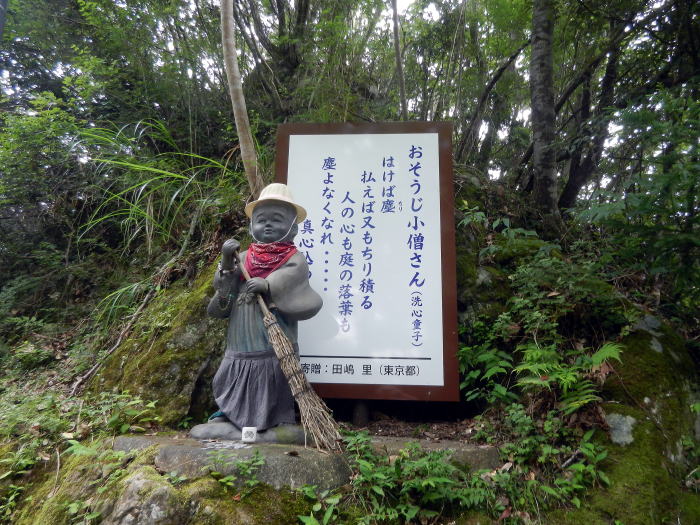 おそうじ小僧さん(洗心童子)
はけば塵
ちり
払えば又もちり積る
人の心も庭の落葉も
塵よなくなれ・・・・・
真心込
寄贈:田嶋 里(東京都)